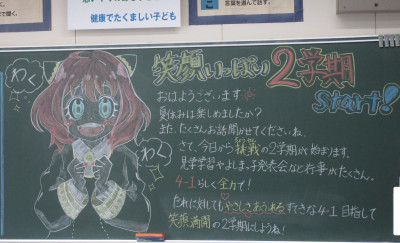 健康でたくましい子ども
言葉を選んで話す。
わく
わく
笑顔いっぱい
2学期
start!
おはようございます
夏休みは楽しめましたか?
また、たくさんお話聞かせてくださいね。
さて、今日から
の2学期が始まります。
見学学習や
発表会など行事がたくさん。
4-1らしく全力で!
だれに対しても やさしさあふれるすてきな4-1目指して
笑顔満開の2学期にしようね!